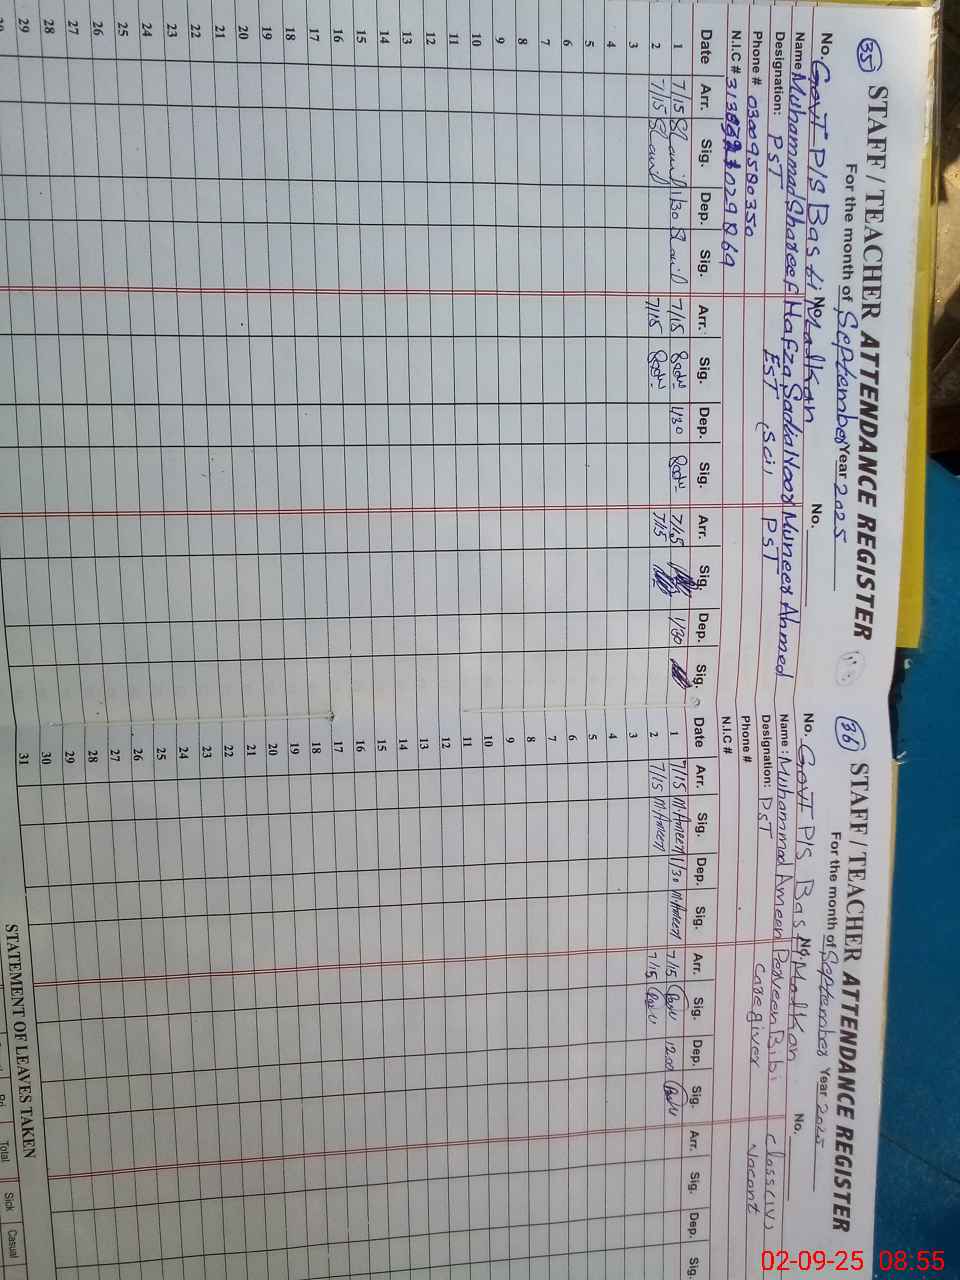 35 STAFF / TEACHER ATTENDANCE REGISTER
For the month of September Year 2025
No. Govt P/S Basti Madkan No. No.
Name Muhammad Shareef Hafza Sadia Noor Muneer Ahmed
Designation: PST EST (Sci) PST
Phone # 03009580350
N.I.C #
Date Arr. Sig. Dep. Sig. Arr. Sig. Dep. Sig. Arr. Sig. Dep. Sig.
1 7/15 1/30 7/15 1/30 7/15 1/30
2 7/15 7/15 7/15
3
4
5
6
7
8
9
10
11
12
13
14
15
16
17
18
19
20
21
22
23
24
25
26
27
28
29
36 STAFF / TEACHER ATTENDANCE REGISTER
For the month of September Year 2025
No. Govt P/S Basti Madkan No. No.
Name : Muhammad Ameen Perveen Bibi Class (IV)
Designation: PST Caregiver Vacant
Phone #
N.I.C #
Date Arr. Sig. Dep. Sig. Arr. Sig. Dep. Sig. Arr. Sig. Dep. Sig.
1 7/15 M.Ameen 1/30 M.Ameen 7/15 12.00
2 7/15 M.Ameen 7/15
3
4
5
6
7
8
9
10
11
12
13
14
15
16
17
18
19
20
21
22
23
24
25
26
27
28
29
30
31
STATEMENT OF LEAVES TAKEN
Total Sick Casual
02-09-25 08:55